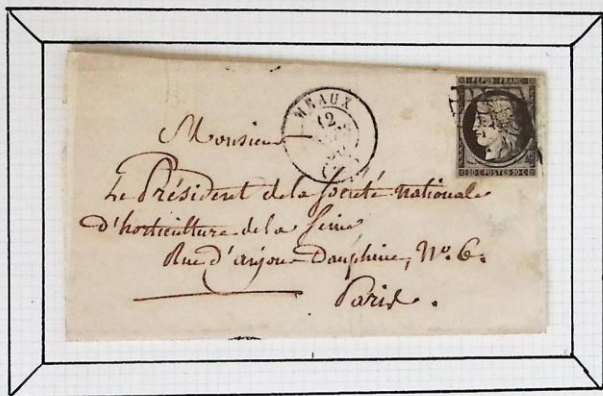 REPUB. FRANC.
20 C. POSTES 20 C.
MEAUX
12
Monsieur
Le Président de la Société nationale
d'horticulture de la Seine
Rue d'anjou-Dauphine, No. 6.
Paris.